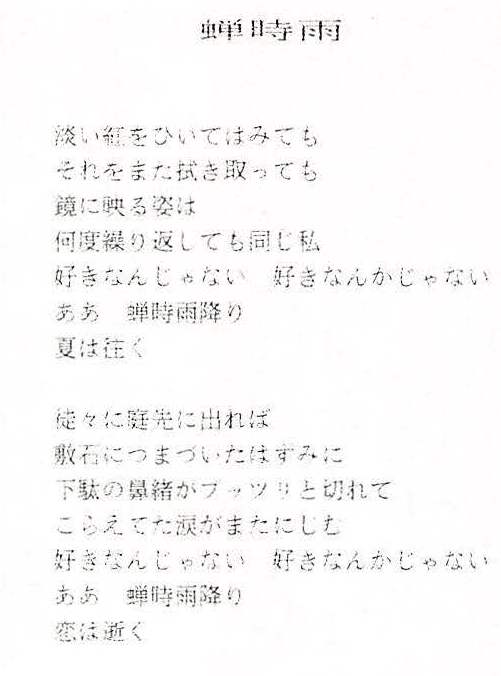 蝉時雨
淡い紅をひいてはみても
それをまた拭き取っても
鏡に映る姿は
何度繰り返しても同じ私
好きなんじゃない　好きなんかじゃない
ああ　蝉時雨降り
夏は往く
徒々に庭先に出れば
敷石につまづいたはずみに
下駄の鼻緒がプッツリと切れて
こらえてた涙がまたにじむ
好きなんじゃない　好きなんかじゃない
ああ　蝉時雨降り
恋は逝く